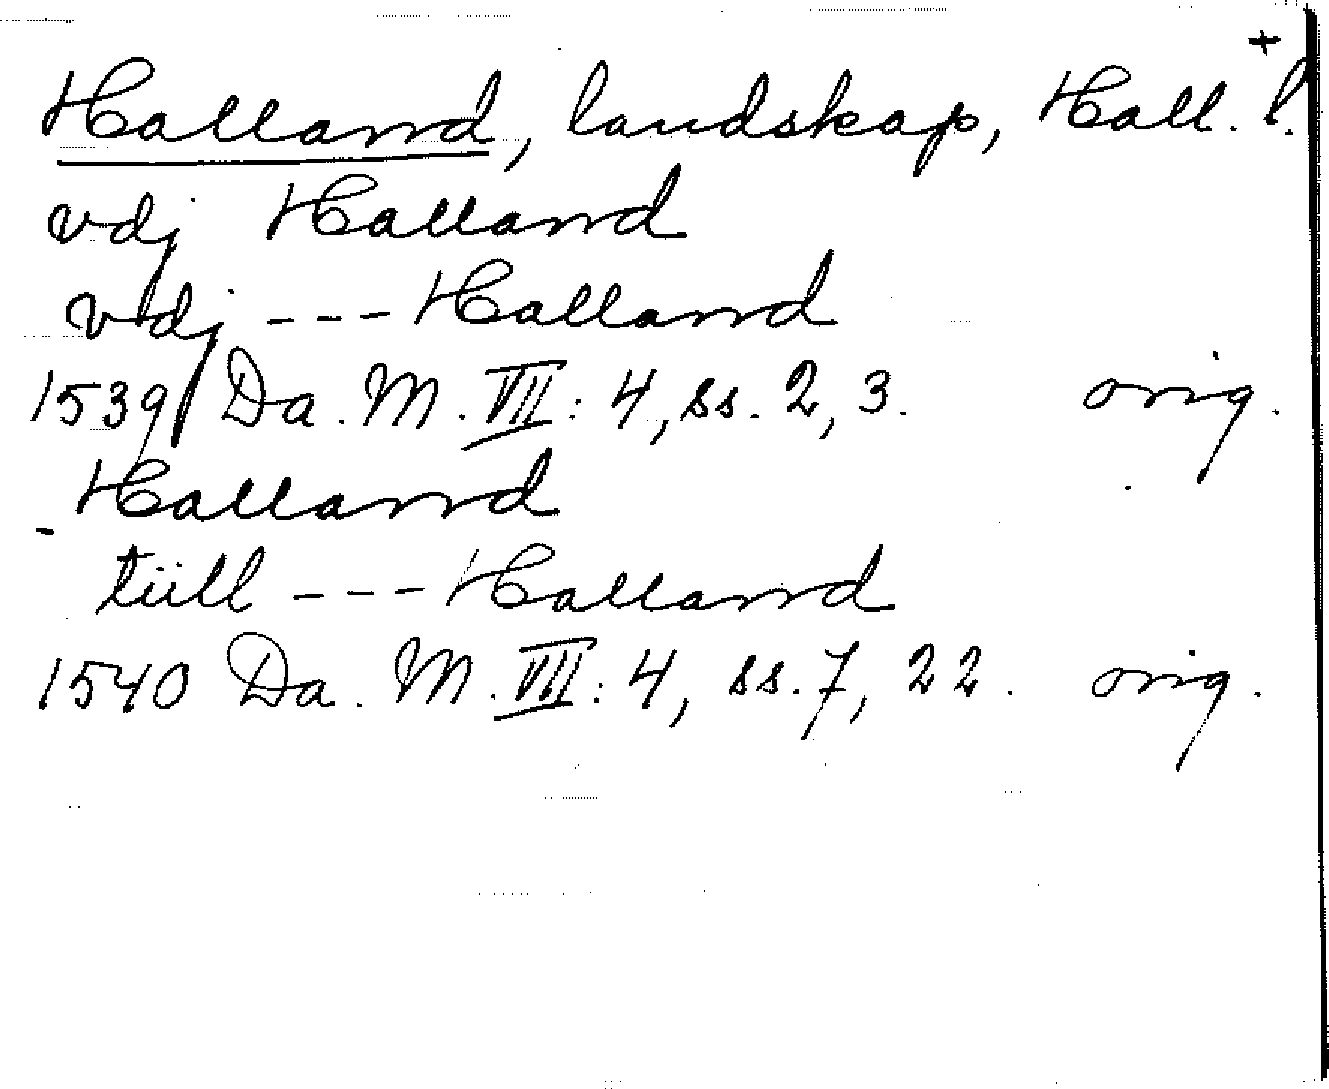 +
Halland, landskap, Hall. l.
vdj Halland
vdj --- Halland
1539 Da. M. VII: 4, ss. 2, 3. orig.
Halland
tüll --- Halland
1540 Da. M. VII: 4, ss. 7, 22. orig.